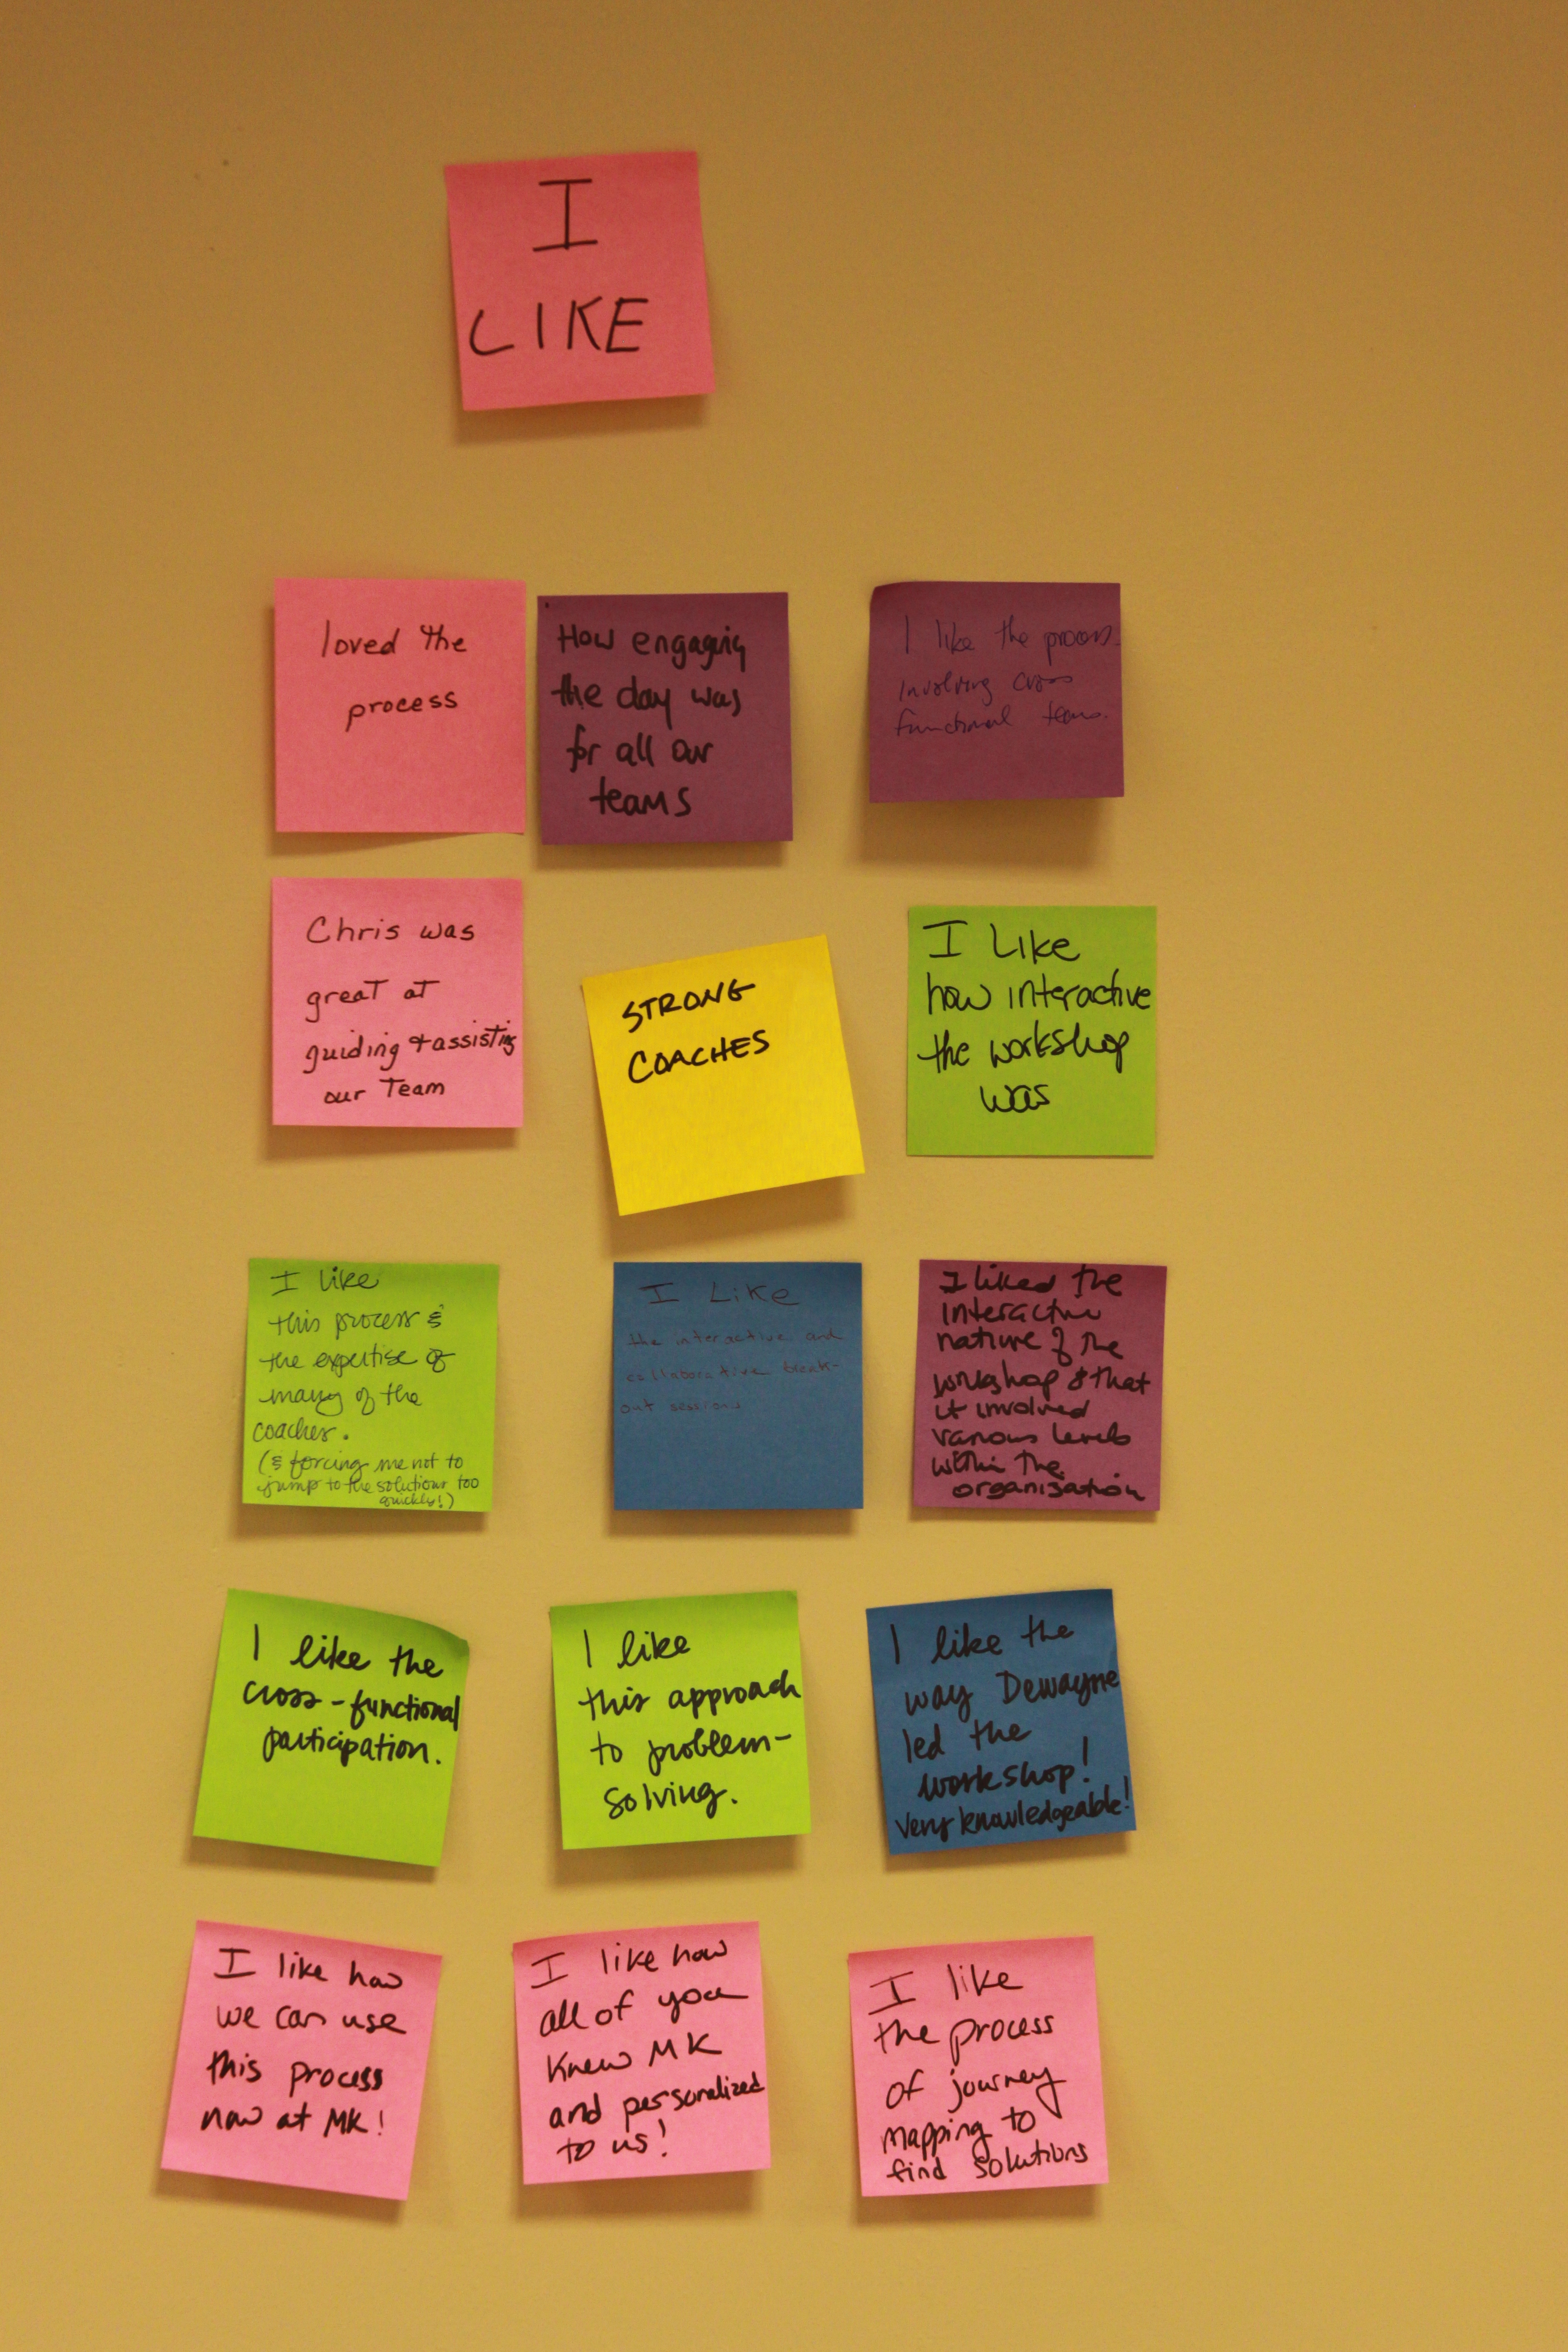 I
LIKE
loved the
process
How engaging
the day was
for all our
teams
I like the process
involving cross
functional teams.
Chris was
great at
guiding & assisting
our Team
STRONG
COACHES
I Like
how interactive
the workshop
was
I like
this process &
the expertise of
many of the
coaches.
(& forcing me not to
jump to the solutions too
quickly!)
I Like
the interactive and
collaborative break-
out sessions
I liked the
interactive
nature of the
workshop & that
it involved
various levels
within the
organisation
I like the
cross-functional
participation.
I like
this approach
to problem-
solving.
I like the
way Dewayne
led the
workshop!
very knowledgeable!
I like how
we can use
this process
now at MK!
I like how
all of you
knew MK
and personalized
to us!
I like
the process
of journey
mapping to
find solutions